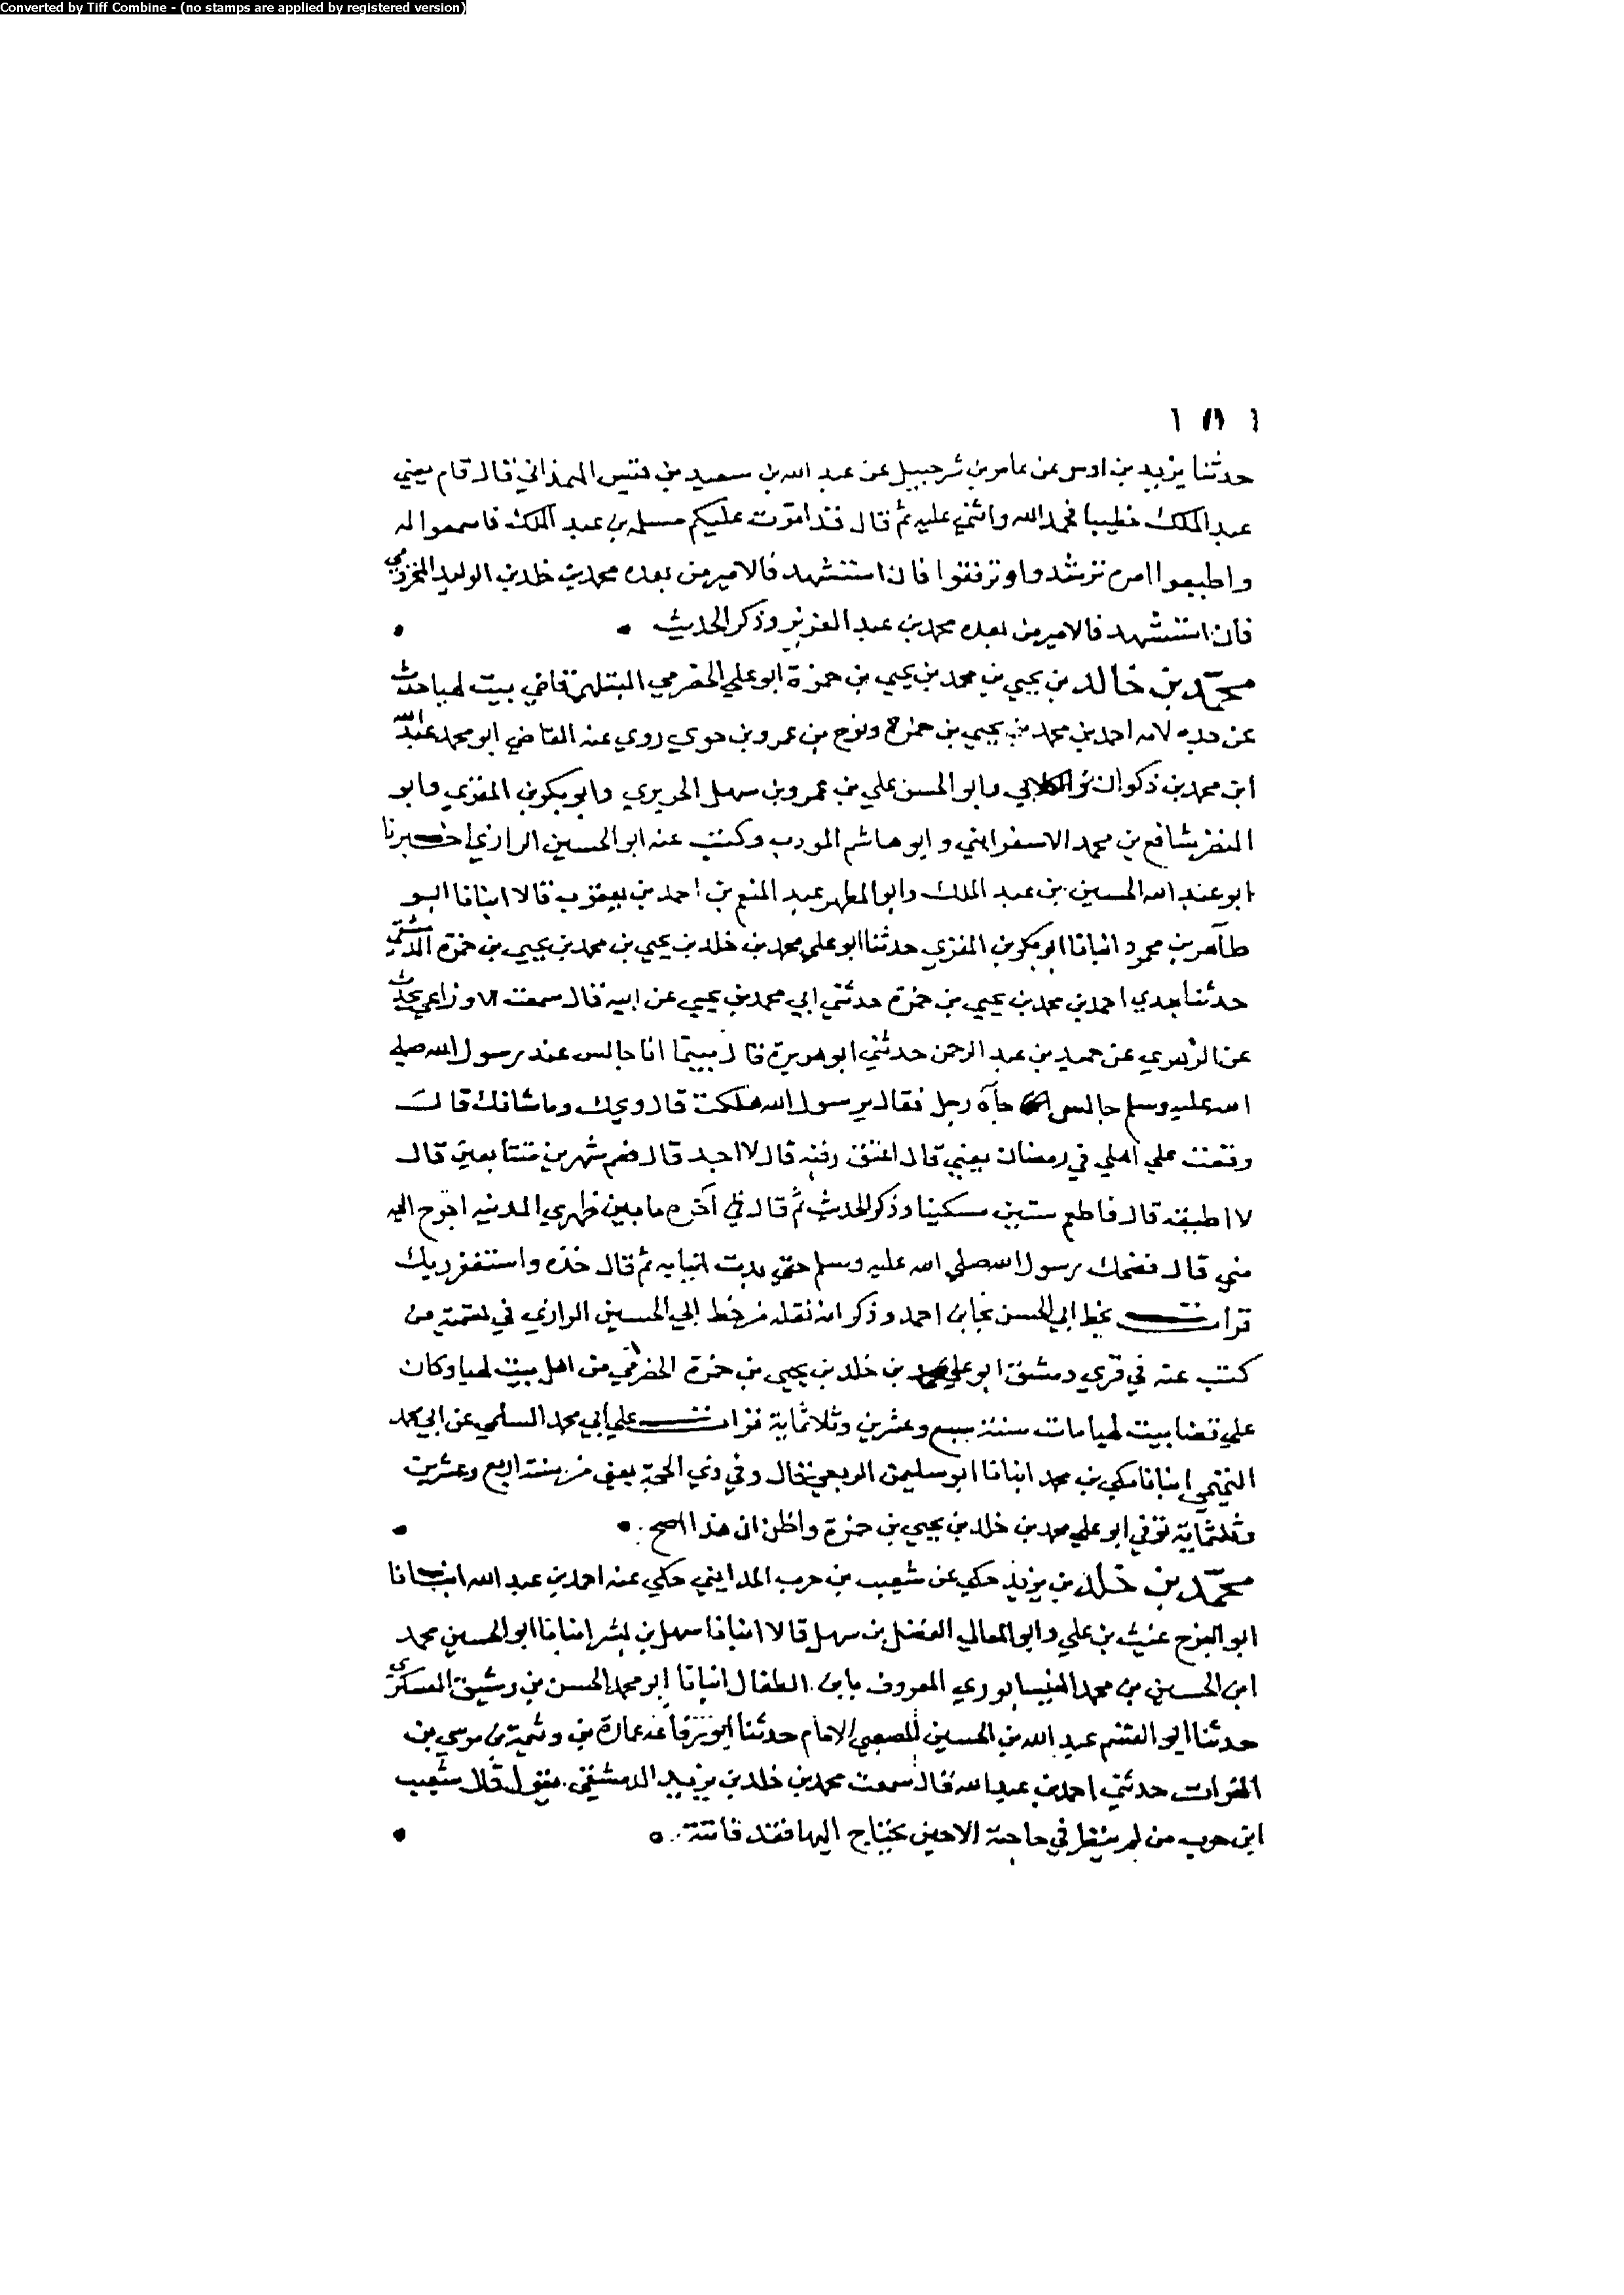 Converted by Tiff Combine - (no stamps are applied by registered version)
حدثنا يزيد بن اوس عن عامر بن شرحبيل عن عبد الله بن سعيد بن قيس الهمذاني قال قام يعني
عبد الملك خطيبا فحمد الله واثني عليه ثم قال قد امرت عليكم مسلمه بن عبد الملك فاسمعوا له
واطيعوا امره ترشدوا وتوفقوا فان استشهد فالامير من بعده محمد بن خلد بن الوليد المخزومي
فان استشهد فالامير من بعده محمد بن عبد العزيز وذكر الحديث
محمد بن خالد بن يحيي بن محمد بن يحيي بن حمزة ابو علي الحضرمي البتلهي قاضي بيت لهيا حدث
عن جده لامه احمد بن محمد بن يحيي بن حمزة ونوح بن عمرو بن حوي روي عنه القاضي ابو محمد عبد الله
ابن محمد بن ذكوان الكلابي وابو الحسن علي بن عمرو بن سهل الحريري وابو بكر بن المقري وابو
النضر شافع بن محمد الاسفرايني وابو هاشم المودب وكتب عنه ابو الحسين الرازي اخبرنا
ابو عبد الله الحسين بن عبد الملك وابو المطهر عبد المنعم بن احمد بن يعقوب قالا انبانا ابو
طاهر بن محمود انبانا ابو بكر بن المقري حدثنا ابو علي محمد بن خلد بن يحيي بن محمد بن يحيي بن حمزة الدمشقي
حدثنا جدي احمد بن محمد بن يحيي بن حمزة حدثني ابي محمد بن يحيي عن ابيه قال سمعت الاوزاعي يحدث
عن الزهري عن حميد بن عبد الرحمن حدثني ابو هريرة قال بينما انا جالس عند رسول الله صلي
الله عليه وسلم جالس جآه رجل فقال يرسول الله هلكت قال ويحك وما شانك قال
وقعت علي اهلي في رمضان يعني قال اعتق رقبه قال لا اجد قال فصم شهرين متتابعين قال
لا اطيقه قال فاطعم ستين مسكينا وذكر الحديث ثم قال في آخره ما بين ظهري المدينه احوج اليه
مني قال فضحك رسول الله صلي الله عليه وسلم حتي بدت انيابه ثم قال خذه واستغفر ربك
قرات بخط ابي الحسن نجا بن احمد وذكر انه نقله من خط ابي الحسين الرازي في تسمية من
كتب عنه في قري دمشق ابو علي محمد بن خلد بن يحيي بن حمزة الحضرمي من اهل بيت لهيا وكان
علي قضا بيت لهيا مات سنة سبع وعشرين وثلاثماية قرات علي ابي محمد السلمي عن ابي محمد
التميمي انبانا مكي بن محمد انبانا ابو سليمن الربعي قال وفي ذي الحجة يعني من سنة اربع وعشرين
وثلثماية توفي ابو علي محمد بن خلد بن يحيي بن حمزة واظن ان هذا اصح
محمد بن خلد بن يزيد حكي عن شعيب بن حرب المدايني حكي عنه احمد بن عبد الله انبانا
ابو الفرج غيث بن علي وابو المعالي الفضل بن سهل قالا انبانا سهل بن بشر انبانا ابو الحسين محمد
ابن الحسين بن محمد النيسابوري المعروف بابن الطفال انبانا ابو محمد الحسن بن رشيق العسكري
حدثنا ابو القسم عبد الله بن الحسين المصيصي الامام حدثنا ابو زرفاعه عمارة بن وثيمة بن موسي بن
الفرات حدثني احمد بن عبد الله قال سمعت محمد بن خلد بن يزيد الدمشقي يقول قال شعيب
ابن حرب من لم ينظر في حاجة الا حين يحتاج اليها فقد فاتته